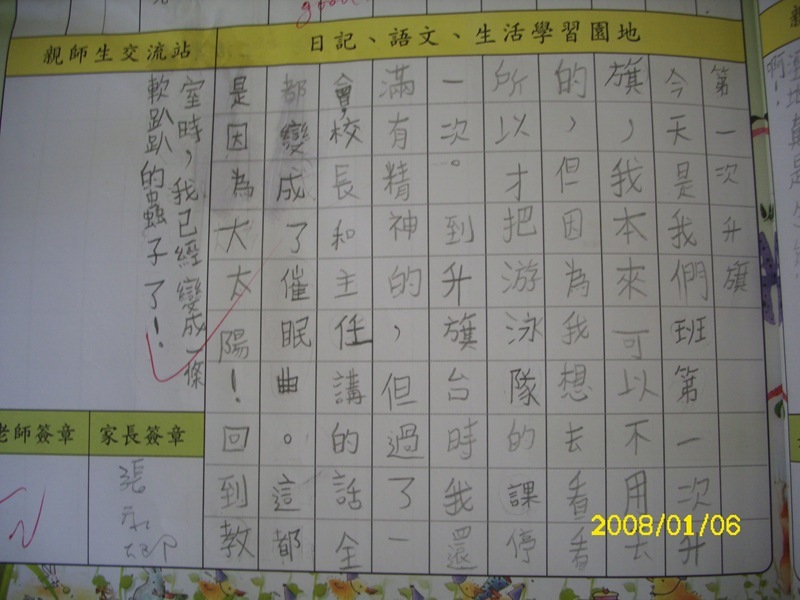 日記、語文、生活學習園地
親師生交流站
第一次升旗
今天是我們班第一次升
旗，我本來可以不用去
的，但因為我想去看看
所以才把游泳隊的課停
一次。到升旗台時我還
滿有精神的，但過了一
會，校長和主任講的話全
都變成了催眠曲。這都
是因為大太陽！回到教
室時，我已經變成一條
軟趴趴的蟲子了！
家長簽章
老師簽章
張
2008/01/06